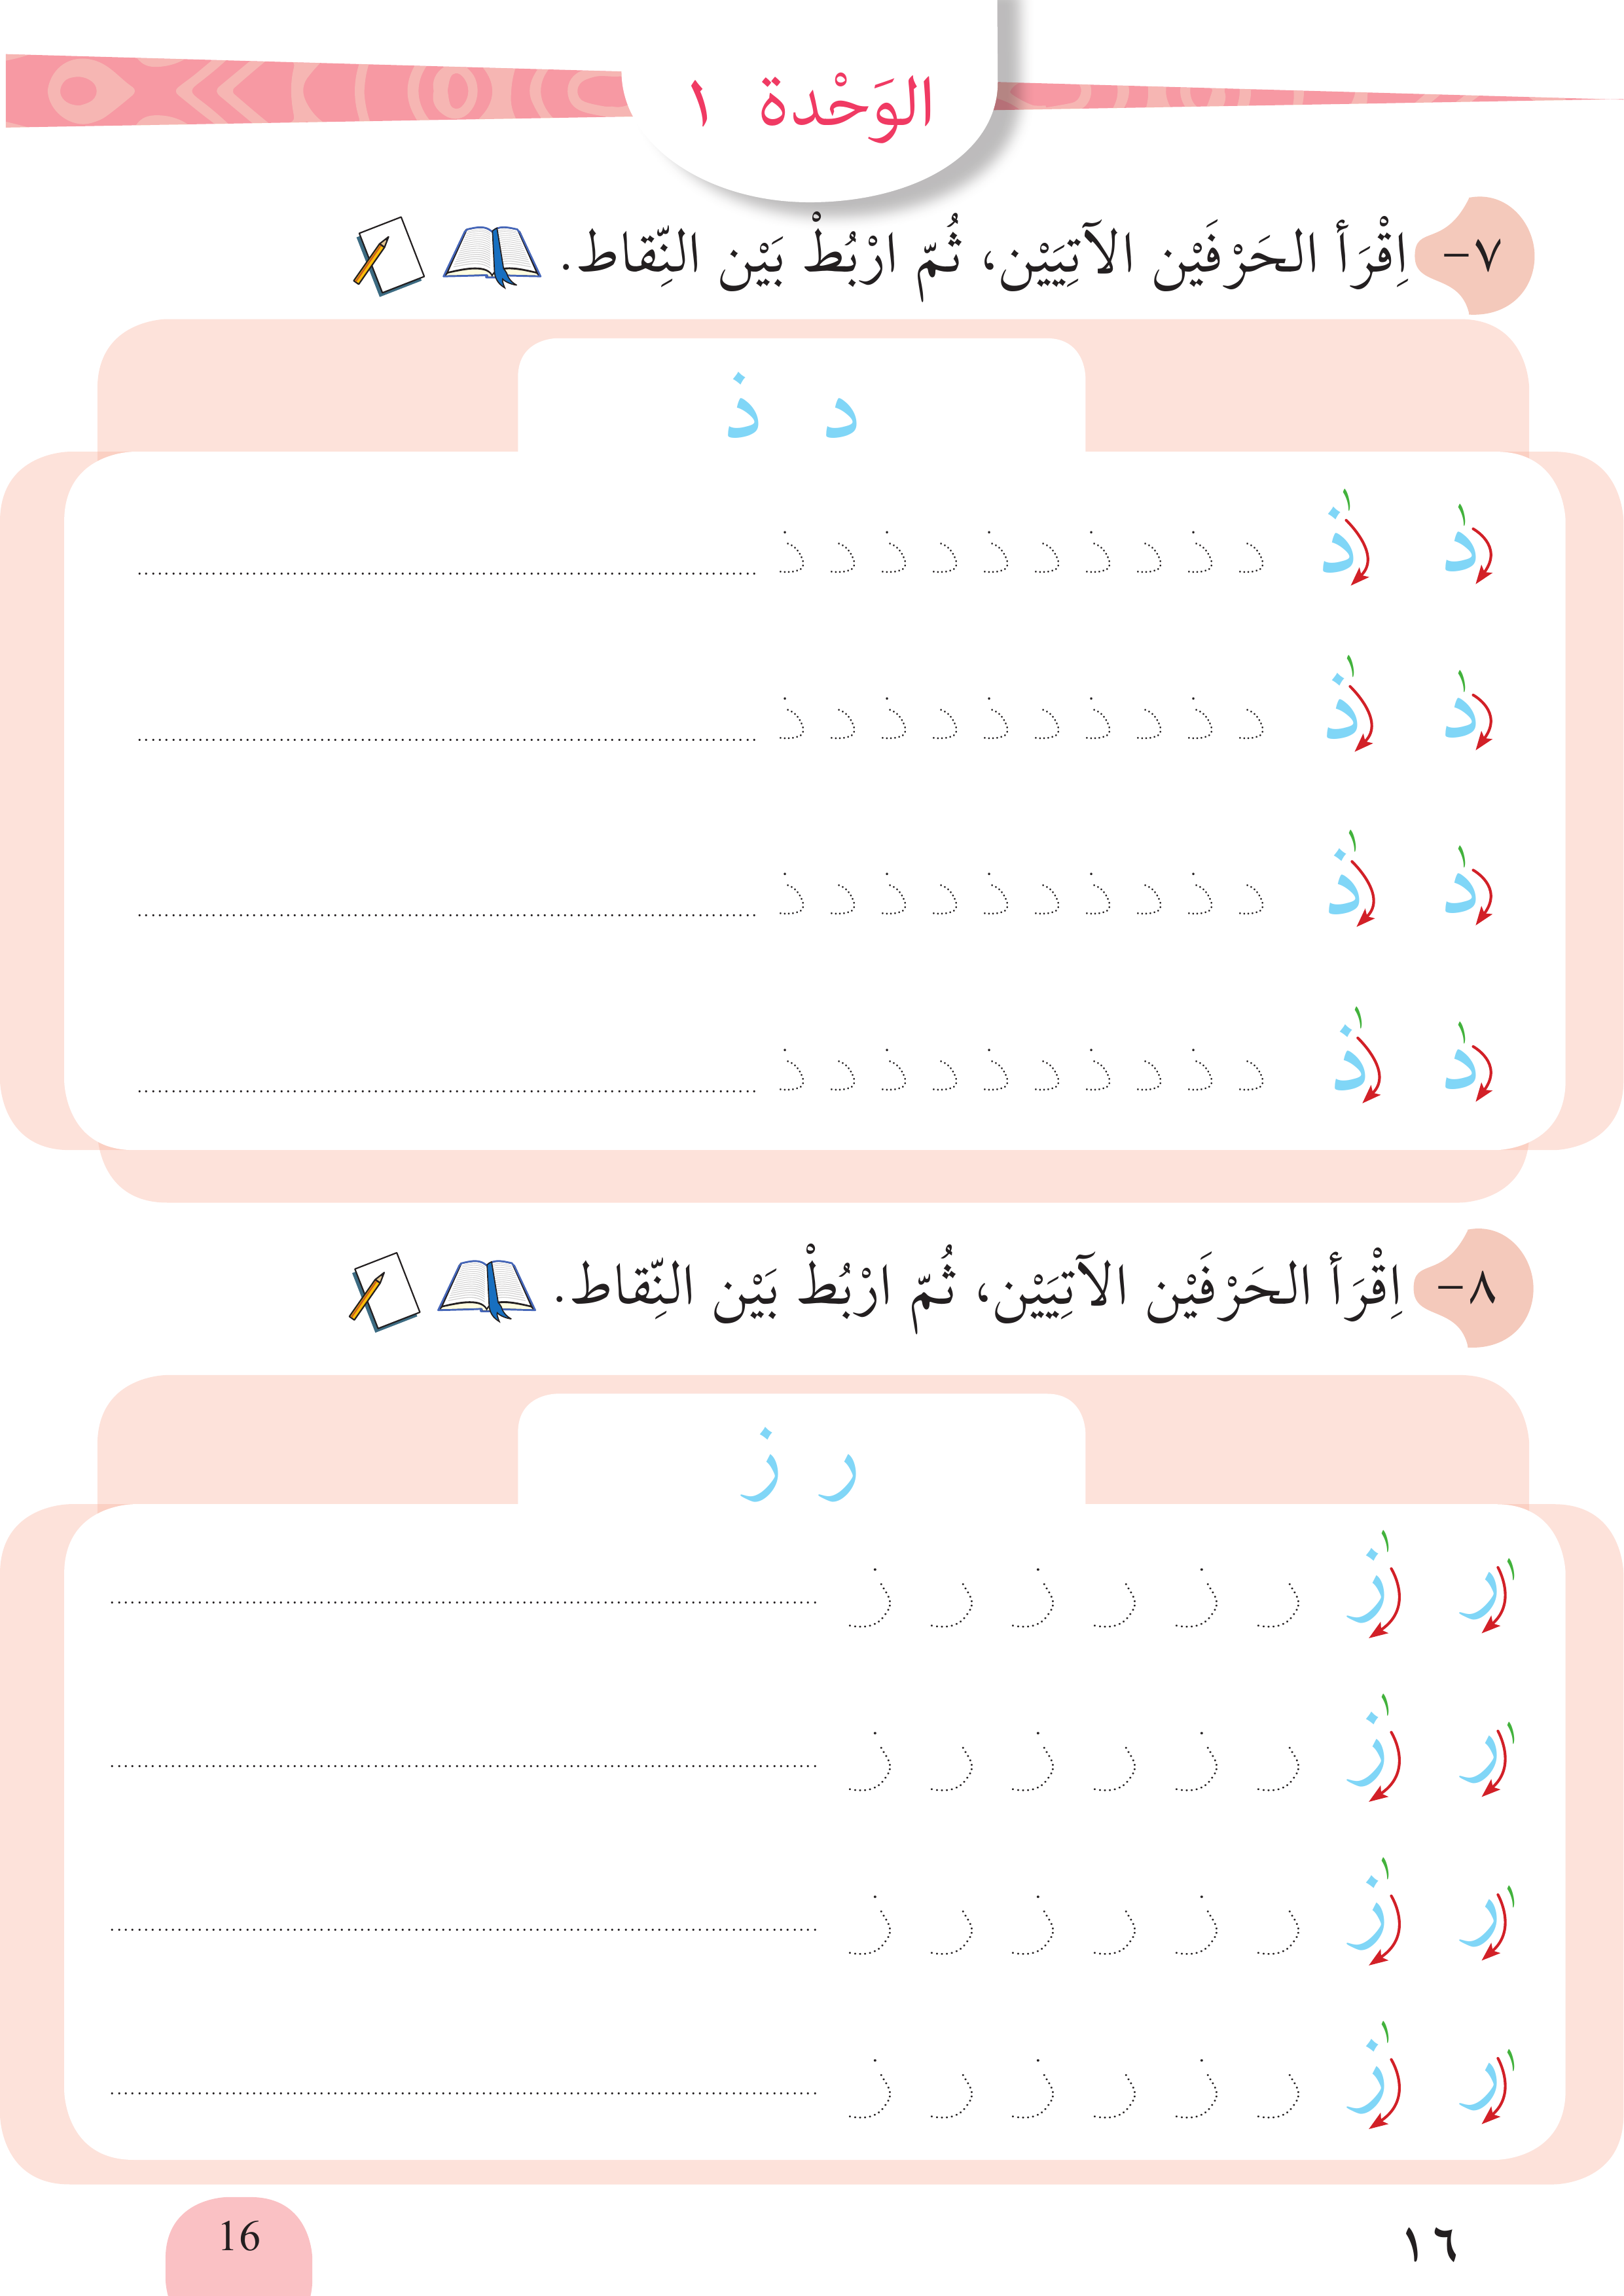 الوَحْدة ١
٧- اِقْرَأ الحَرْفَيْن الآتِيَيْن، ثُمّ ارْبُطْ بَيْن النِّقاط.
د ذ
١ ١
د ذ د ذ د ذ د ذ د ذ د ذ
١ ١
د ذ د ذ د ذ د ذ د ذ د ذ
١ ١
د ذ د ذ د ذ د ذ د ذ د ذ
١ ١
د ذ د ذ د ذ د ذ د ذ د ذ
٨- اِقْرَأ الحَرْفَيْن الآتِيَيْن، ثُمّ ارْبُطْ بَيْن النِّقاط.
ر ز
١ ١
ر ز ر ز ر ز ر ز
١ ١
ر ز ر ز ر ز ر ز
١ ١
ر ز ر ز ر ز ر ز
١ ١
ر ز ر ز ر ز ر ز
١٦
16